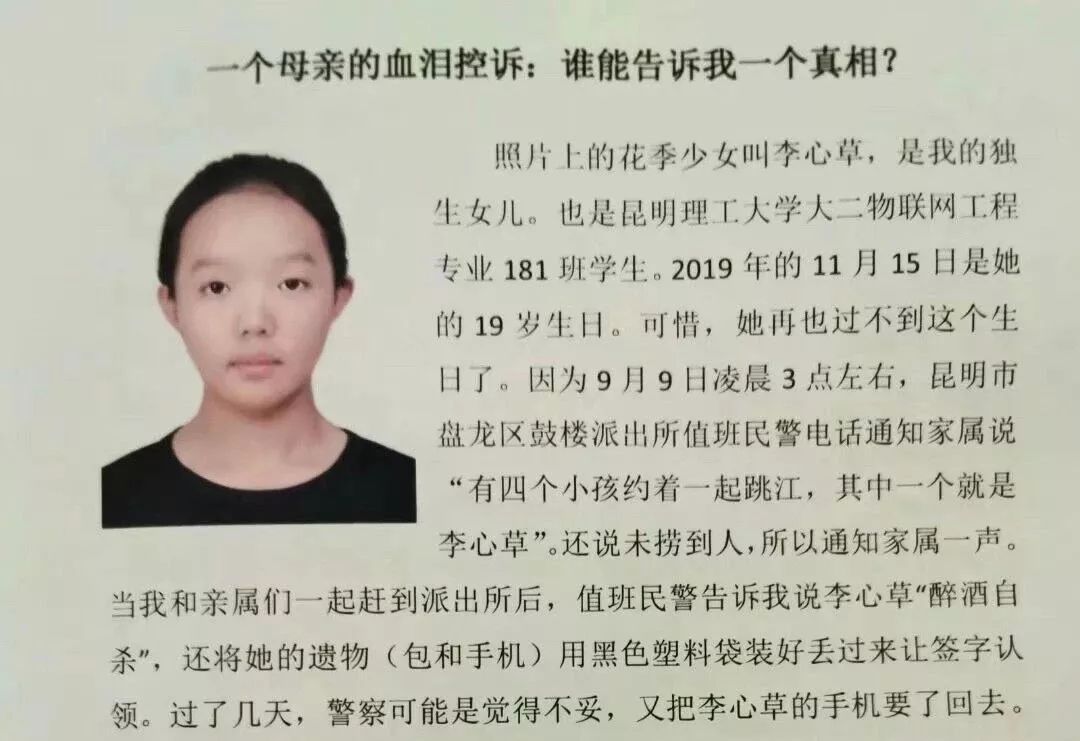 一个母亲的血泪控诉：谁能告诉我一个真相？
照片上的花季少女叫李心草，是我的独
生女儿。也是昆明理工大学大二物联网工程
专业 181 班学生。2019 年的 11 月 15 日是她
的 19 岁生日。可惜，她再也过不到这个生
日了。因为 9 月 9 日凌晨 3 点左右，昆明市
盘龙区鼓楼派出所值班民警电话通知家属说
“有四个小孩约着一起跳江，其中一个就是
李心草”。还说未捞到人，所以通知家属一声。
当我和亲属们一起赶到派出所后，值班民警告诉我说李心草“醉酒自
杀”，还将她的遗物（包和手机）用黑色塑料袋装好丢过来让签字认
领。过了几天，警察可能是觉得不妥，又把李心草的手机要了回去。